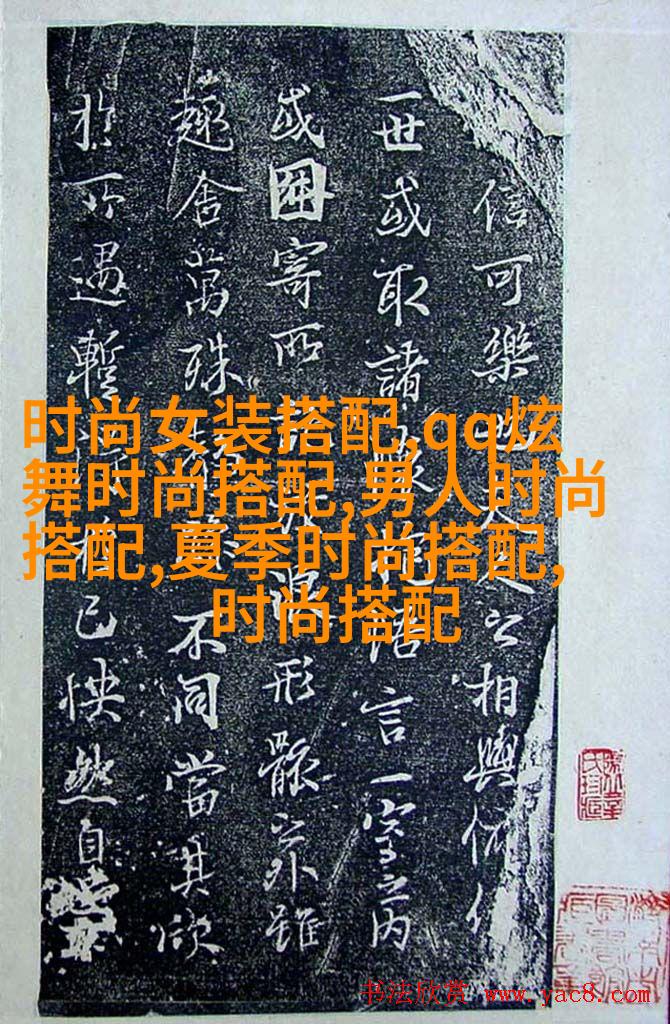 信可樂也夫人之相與俯仰
一世或取諸懷抱悟言一室之內
或因寄所託放浪形骸之外雖
趣舍萬殊靜躁不同當其欣
於所遇暫得於己怏然自
时尚女装搭配,qq炫
舞时尚搭配,男人时尚
搭配,夏季时尚搭配,
时尚搭配
书法欣赏 www.yac8.com